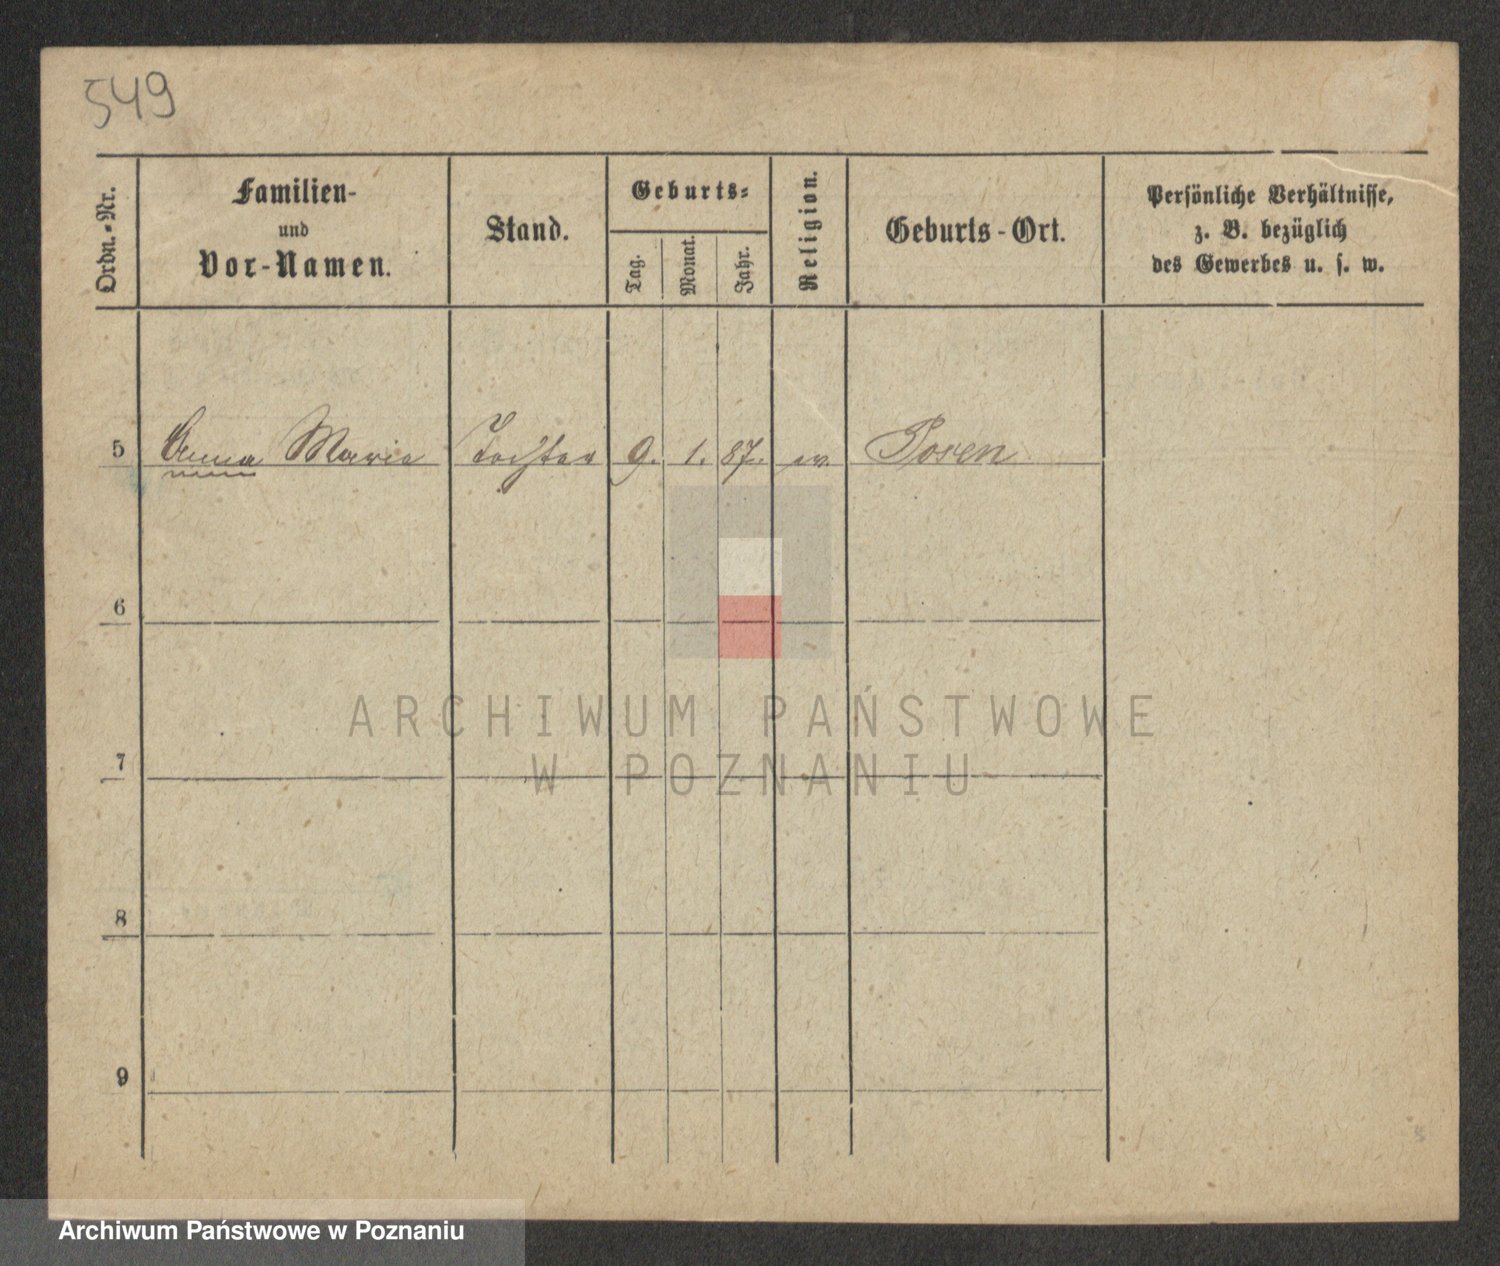 549
Ordn.-Nr.
Familien-
und
Vor-Namen.
Stand.
Geburts-
Tag.
Monat.
Jahr.
Religion.
Geburts-Ort.
Persönliche Verhältnisse,
z. B. bezüglich
des Gewerbes u. s. w.
5 Anna Marie Tochter 9. 1. 87. ev. Posen
6
7
8
9
ARCHIWUM PAŃSTWOWE
W POZNANIU
Archiwum Państwowe w Poznaniu